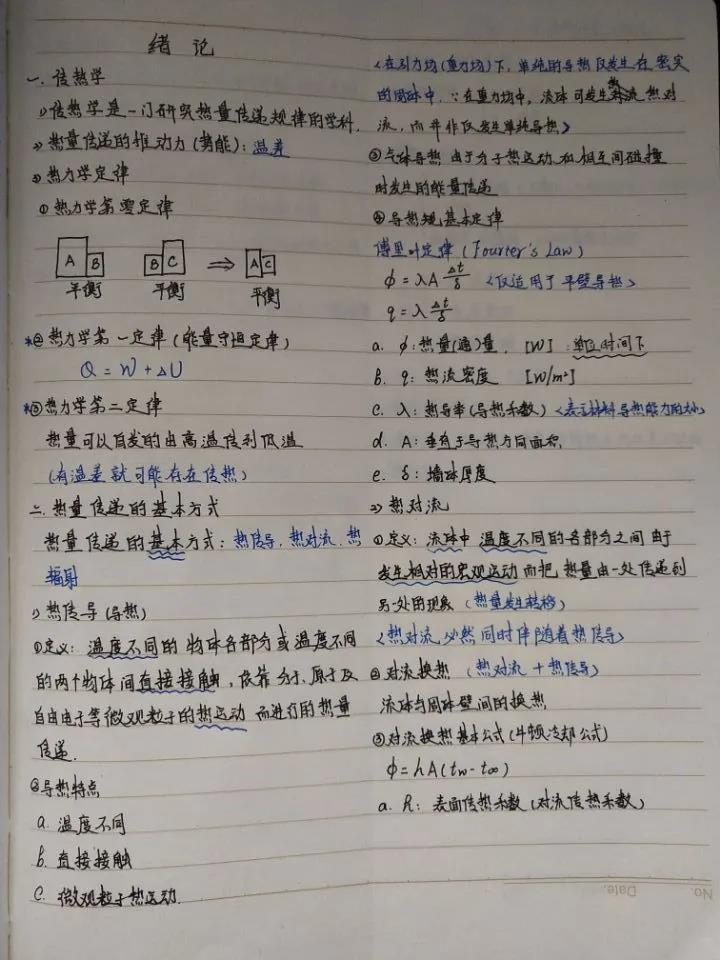 绪论
一. 传热学
1) 传热学是一门研究热量传递规律的学科.
2) 热量传递的推动力(势能): 温差
3) 热力学定律
① 热力学第零定律
A B B C ⇒ A C
平衡 平衡 平衡
*② 热力学第一定律(能量守恒定律)
Q = W + ΔU
*③ 热力学第二定律
热量可以自发的由高温传到低温
(有温差就可能存在传热)
二. 热量传递的基本方式
热量传递的基本方式: 热传导. 热对流. 热
辐射
1) 热传导(导热)
①定义: 温度不同的物体各部分或温度不同
的两个物体间直接接触, 依靠分子、原子及
自由电子等微观粒子的热运动而进行的热量
传递.
②导热特点
a. 温度不同
b. 直接接触
c. 微观粒子热运动.
<在引力场(重力场)下, 单纯的导热仅发生在密实
的固体中. ∵在重力场中, 流体可发生热对
流, 而并非仅发生单纯导热>
③气体导热 由于分子热运动和相互间碰撞
时发生的能量传递
④导热规基本定律
傅里叶定律(Fourter's Law)
ϕ = λA Δt/δ <仅适用于平壁导热>
q = λ Δt/δ
a. ϕ: 热量(通)量. [W] : 单位时间下
b. q: 热流密度 [W/m²]
c. λ: 热导率(导热系数) <表示材料导热能力的大小>
d. A: 垂直于导热方向面积
e. δ: 墙体厚度
2) 热对流
①定义: 流体中温度不同的各部分之间由于
发生相对的宏观运动而把热量由一处传递到
另一处的现象(热量发生转移)
<热对流必然同时伴随着热传导>
②对流换热(热对流+热传导)
流体与固体壁间的换热
③对流换热基本公式(牛顿冷却公式)
ϕ = hA(tw - t∞)
a. h: 表面传热系数(对流传热系数)
No. Date.